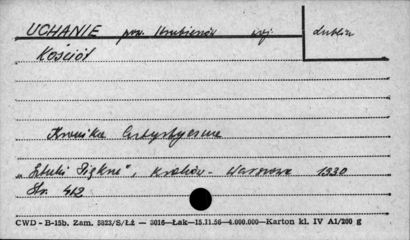 UCHANIE pow. Hrubieszów woj. Lublin
Kościół
Kronika Artystyczna
"Sztuki Piękne", Kraków - Warszawa 1930
Str. 412
CWD - B-15b. Zam. 5823/S/Łż — 3016—Łak—15.11.56—4.000.000—Karton kl. IV A1/200 g